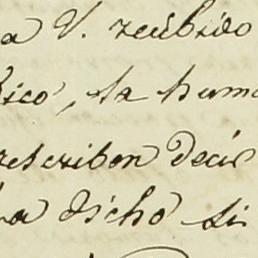 a V. recibido
ico, la hum
rescriben decir
la dicho si